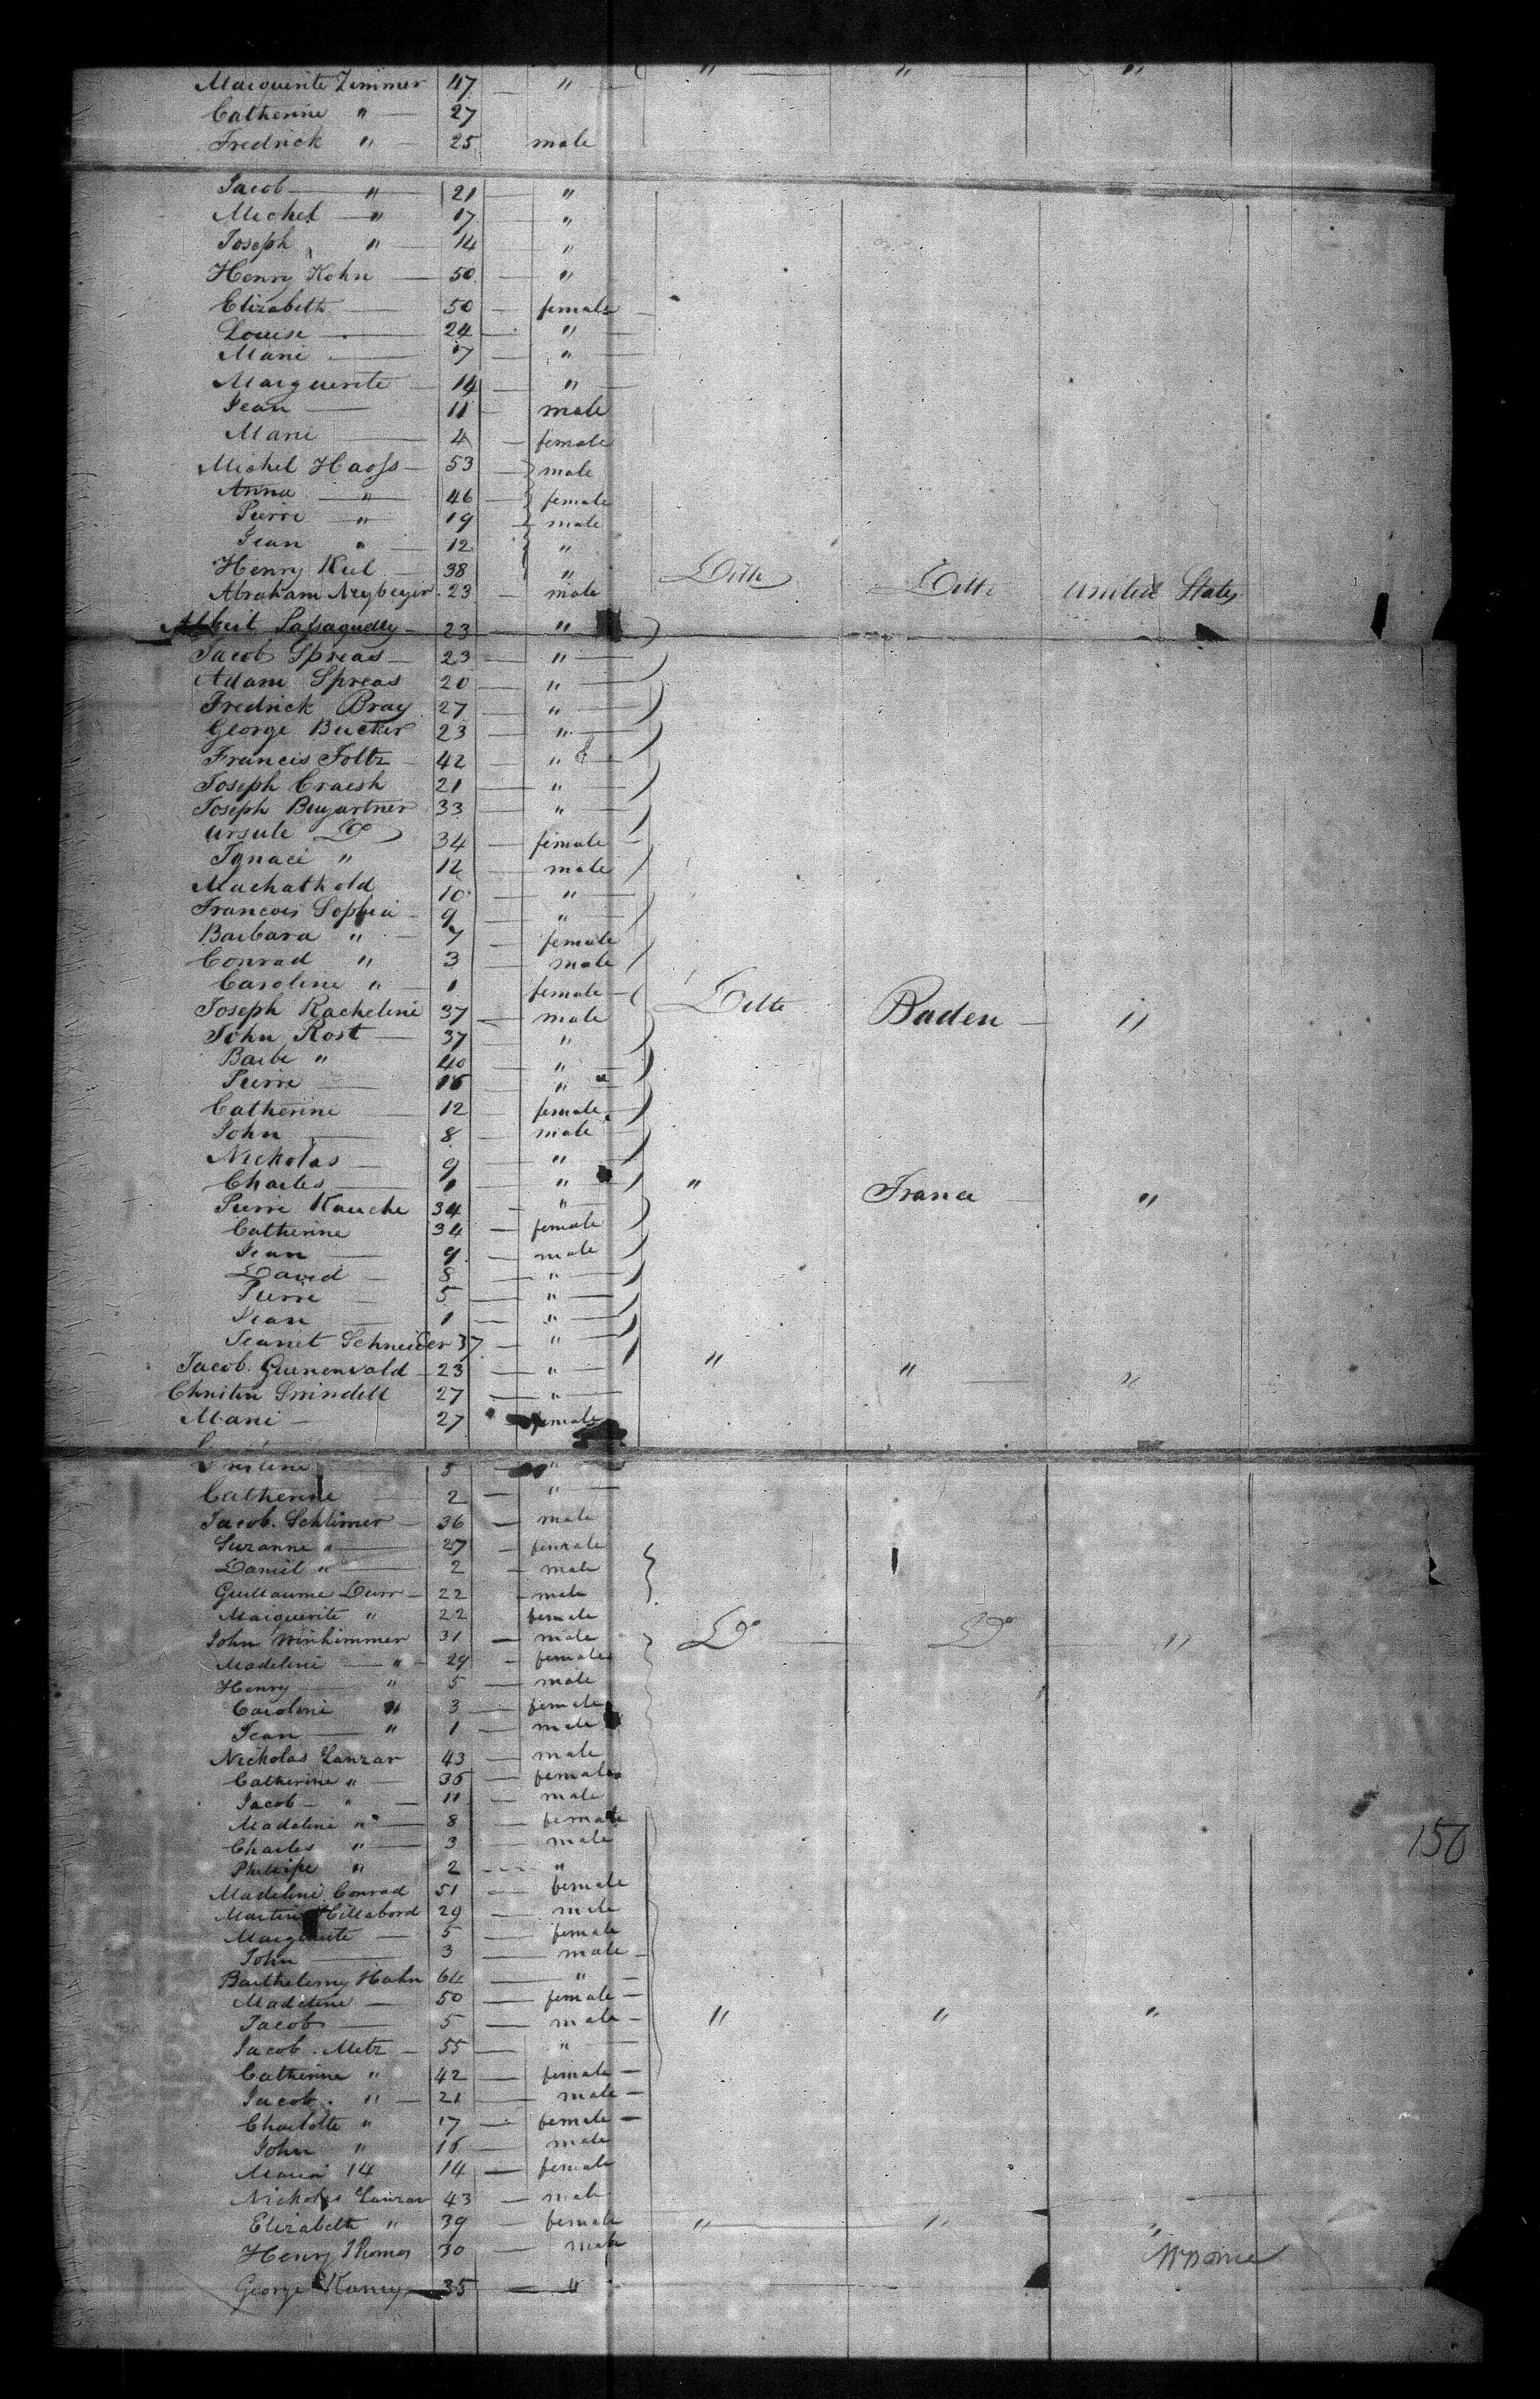 Marguerite Zimmer 47 — " " — " "
Catherine " — 27
Fredrick " — 25 male
Jacob — " — 21 — "
Michel — " 17 — "
Joseph " — 14 — "
Henry Kohn — 50 — "
Elizabeth — 50 — female —
Louise — 24 — "
Marie — 7 — "
Marguerite — 14 — "
Jean — 11 — male
Marie — 4 — female
Michel Haofs — 53 — male
Anna — " — 46 — female
Pierre — " 19 — male
Jean " — 12 "
Henry Kiel — 38 — "
Abraham 23 — male Ditto Ditto United States
23 — "
Jacob Spreas — 23 — "
Adam Spreas 20 — "
Fredrick Bray 27 — "
George Bucker 23 — "
Francis Foltz — 42 — "
Joseph Craesh 21 — "
Joseph Bugartner 33 — "
Ursule Do 34 — female —
Ignace " 12 — male
Machathold 10 — "
Francois Sophia — 9 — "
Barbara " — 7 — female
Conrad " 3 — male
Caroline " — 1 female —
Joseph Racheline 37 — male Ditto Baden — "
John Rost — 37 — "
Barbe " 40 — "
Pierre — 16 — "
Catherine 12 — female
John — 8 — male
Nickolas — 9 — "
Charles — 1 — " " France — "
Pierre Kauche 34 — "
Catherine 34 — female
Jean — 9 — male
David — 8 — "
Pierre — 5 — "
Jean 1 — "
Jeanet Schneider 37 — "
Jacob Guenenwald — 23 — " " " "
Christin Swindell 27 — "
Marie — 27 female
5 — "
Catherine — 2 — "
Jacob. Schlimer — 36 — male
Suzanne " — 27 — female
Daniel " — 2 — male
Guillaume Durr — 22 — male
Marguerite " 22 female
John Winhimmer 31 — male Do — Do — "
Madeline — " — 29 — female
Henry — " 5 — male
Caroline " 3 — female
Jean — " 1 — male
Nickolas Lanzar 43 — male
Catherine " — 36 — female
Jacob — " — 11 — male
Madeline " — 8 — female
Charles " — 3 — male
Philippe " 2 — "
Madeline Conrad 51 — female
150
Martin Hillabord 29 — male
Marguerite — 5 — female
John — 3 — male —
Barthelemy Hahn 64 — " —
Madeline — 50 — female —
Jacob — 5 — male — " " "
Jacob. Metz — 55 — "
Catherine " 42 — female —
Jacob. " — 21 — male —
Charlotte " 17 — female —
John " 16 — male
Maria 14 14 — female
Nickolas Lanzar 43 — male
Elizabeth " 39 — female " — " "
Henry Thomas 30 — male
George 35 — "